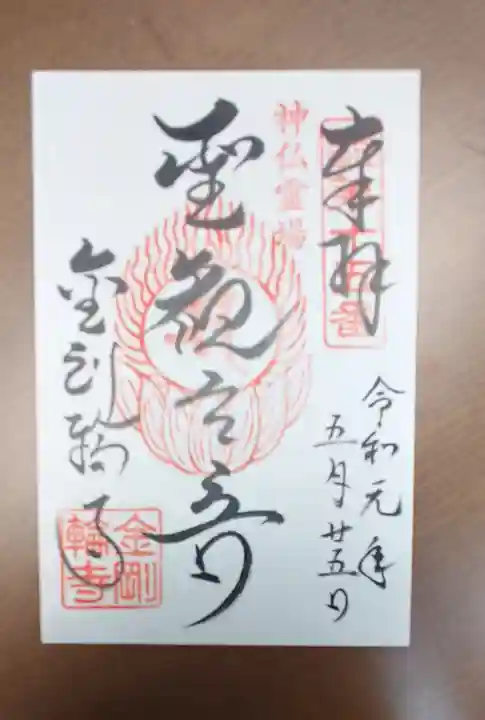 奉拝
令和元年
五月廿五日
神仏霊場
聖観音
金剛輪寺
金剛
輪寺